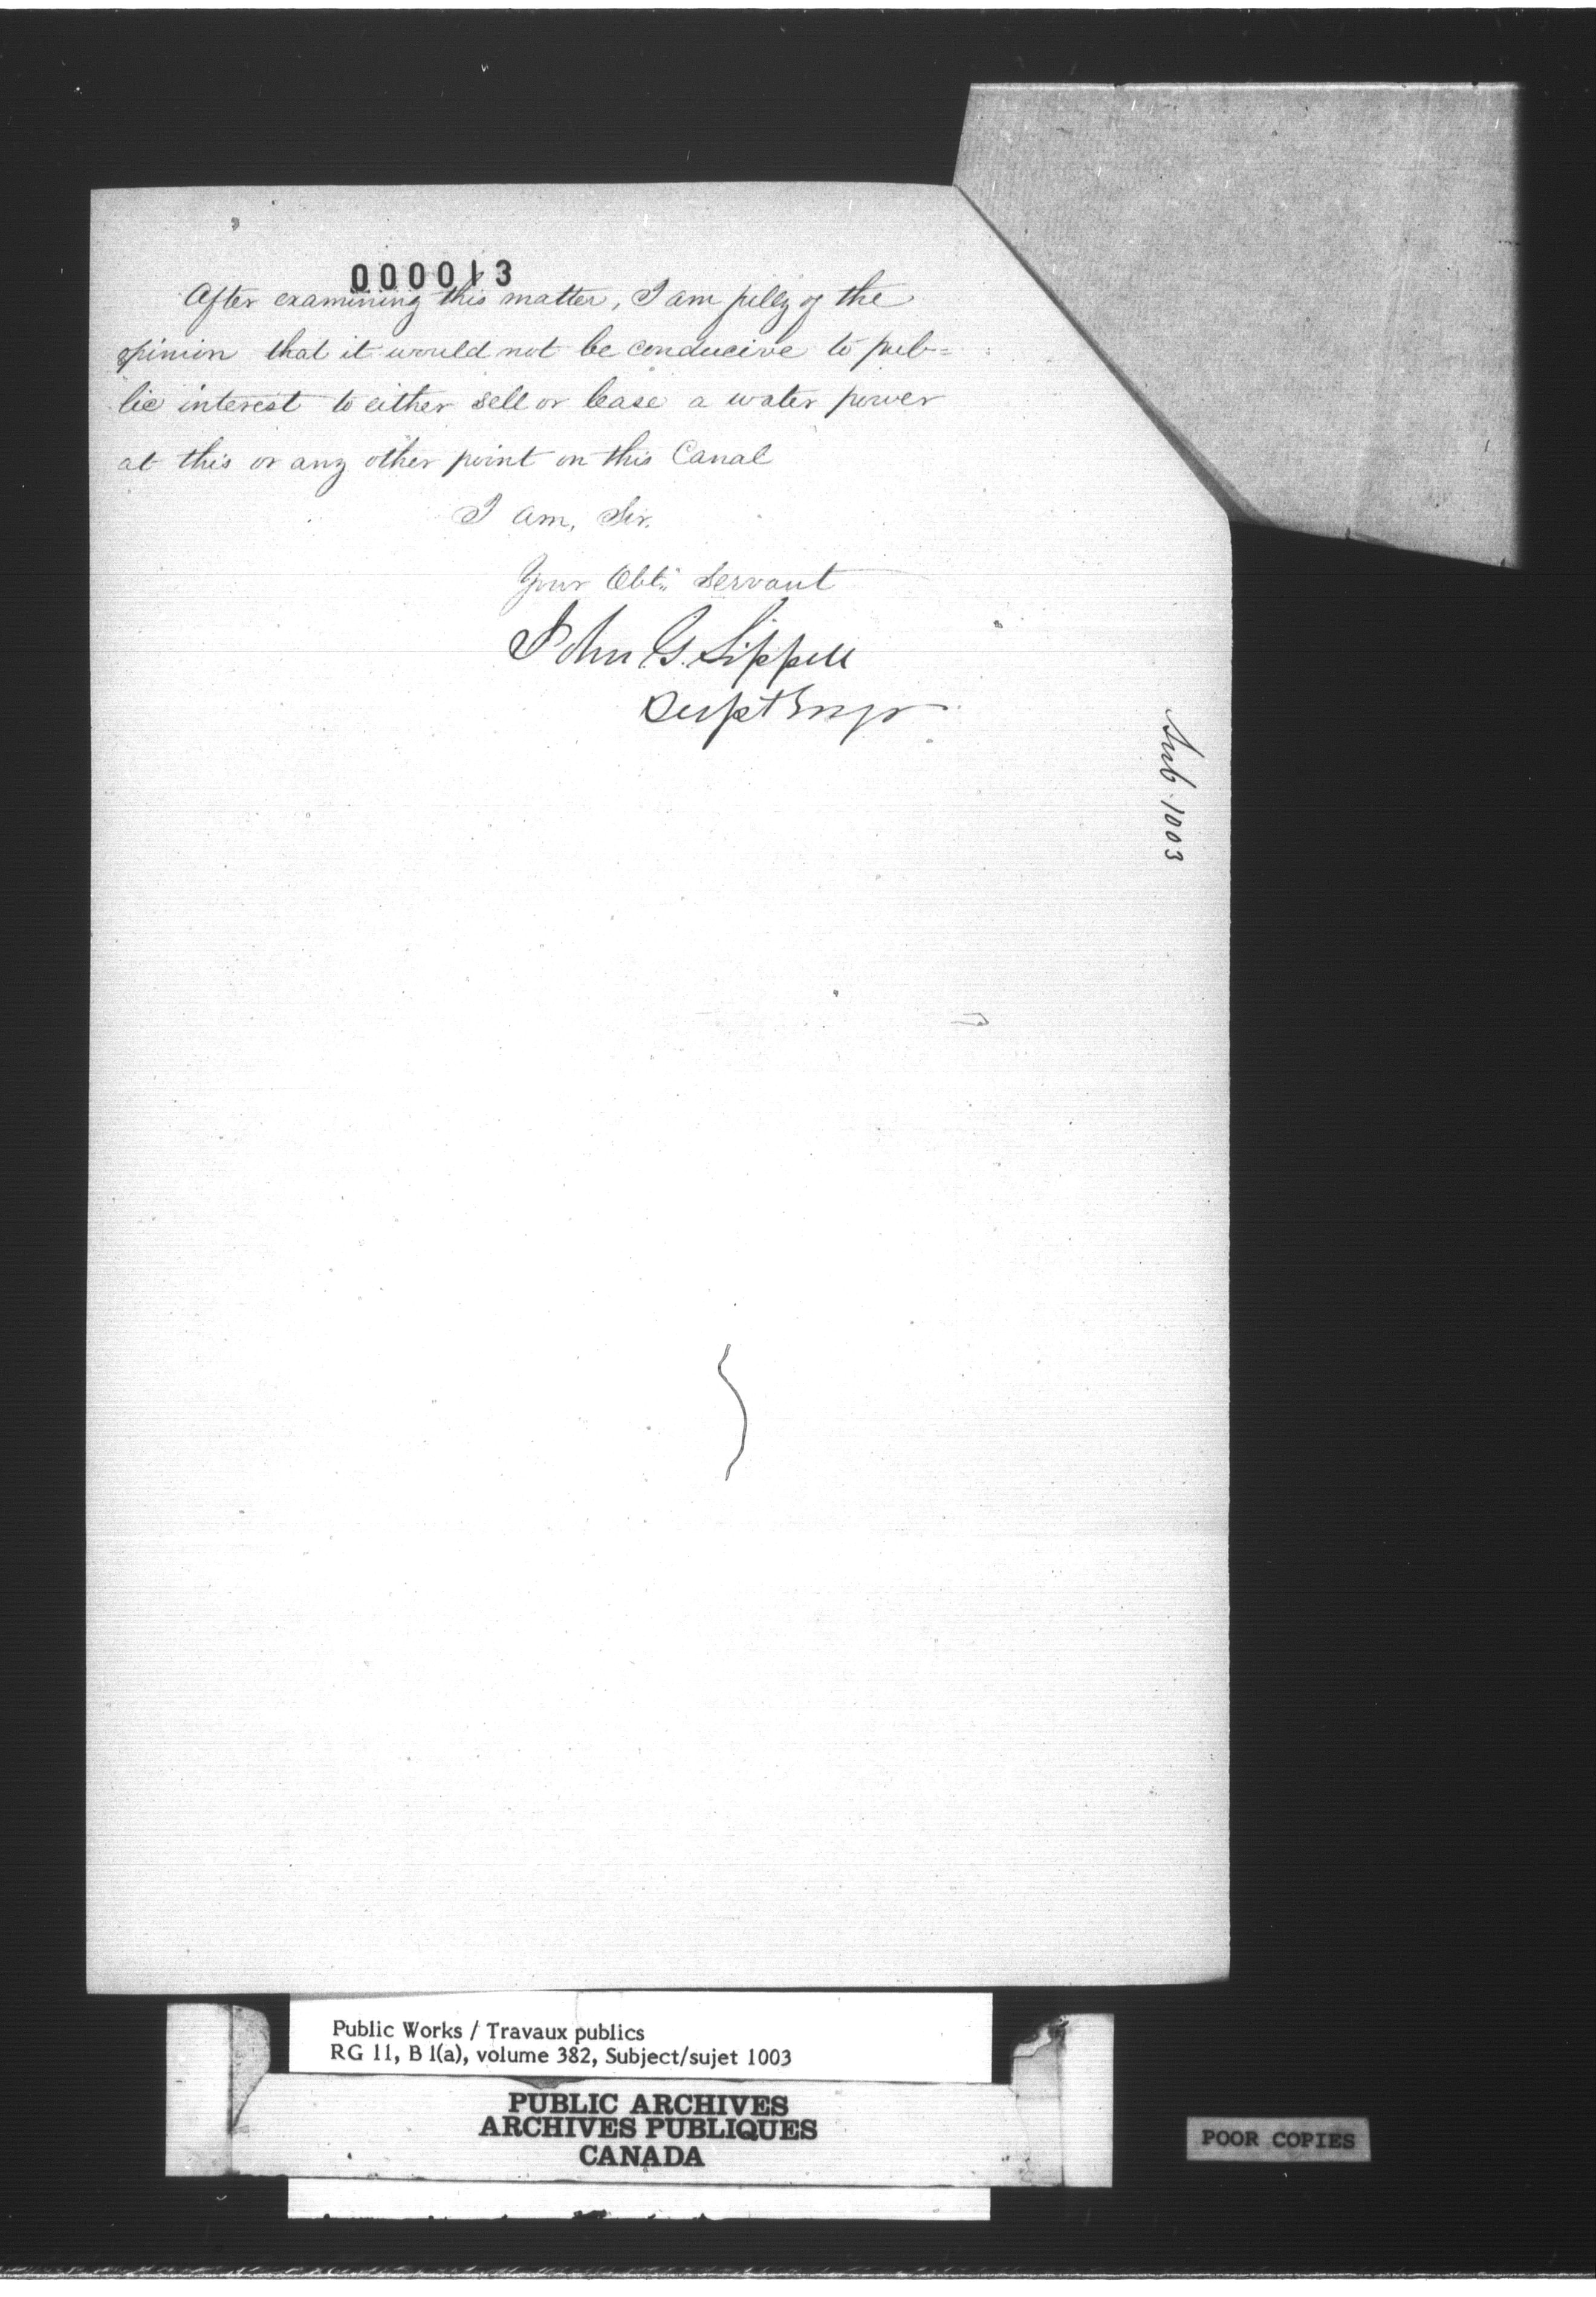 000013
After examining this matter, I am fully of the
opinion that it would not be conducive to pub=
lic interest to either sell or lease a water power
at this or any other point on this Canal
I am, Sir.
Your Obt. Servant
John G. Sippell
Supt Engr
Sub. 1003
Public Works / Travaux publics
RG 11, B 1(a), volume 382, Subject/sujet 1003
PUBLIC ARCHIVES
ARCHIVES PUBLIQUES
CANADA
POOR COPIES